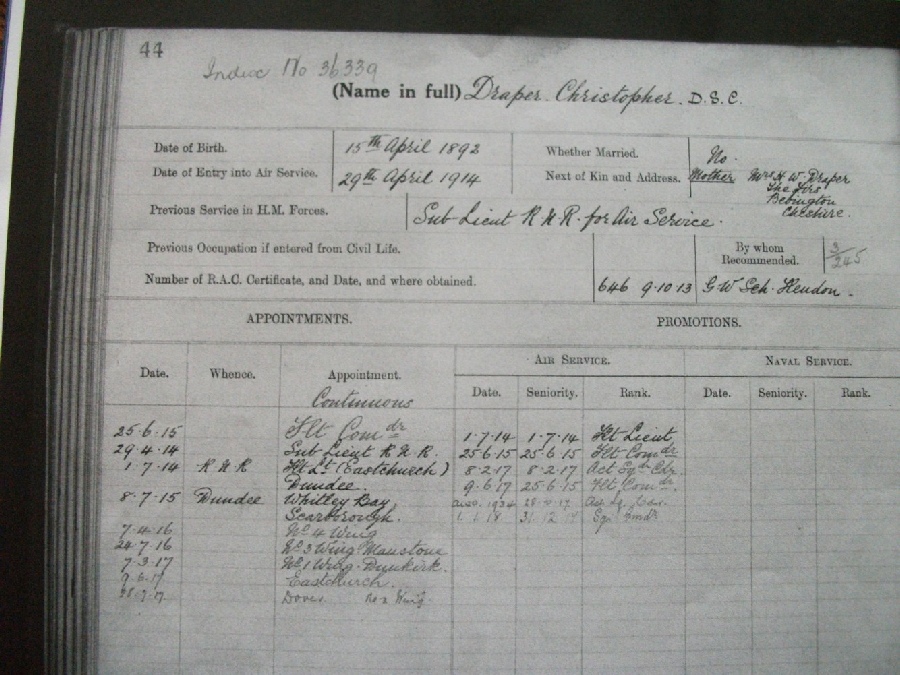 44
Index No 36339
(Name in full) Draper Christopher. D.S.C.
Date of Birth. 15th April 1892 Whether Married. No.
Date of Entry into Air Service. 29th April 1914 Next of Kin and Address. Mother Mrs H W Draper
The Firs
Bebington
Cheshire.
Previous Service in H.M. Forces. Sub Lieut R N R. for Air Service.
Previous Occupation if entered from Civil Life. By whom Recommended. 3/245
Number of R.A.C. Certificate, and Date, and where obtained. 646 9-10-13 G. W Sch. Hendon.
APPOINTMENTS. PROMOTIONS.
AIR SERVICE. NAVAL SERVICE.
Date. Whence. Appointment. Date. Seniority. Rank. Date. Seniority. Rank.
Continuous
25-6-15 Flt Comdr 1-7-14 1-7-14 Flt Lieut
29-4-14 Sub Lieut R N R. 25-6-15 25-6-15 Flt Comdr
1-7-14 R N R Flt Lt (Eastchurch) 8-2-17 8-2-17 Act Sqn Cdr
Dundee. 9-6-17 25-6-15 Flt Comdr.
8-7-15 Dundee Whitley Bay
Scarborough. 1.1.18 31.12.17 Sqn Comdr
7-4-16 No 4 Wing
24-7-16 No 3 Wing Manstone
7-3-17 No 1 Wing. Dunkirk.
9-6-17 Eastchurch.
Dover